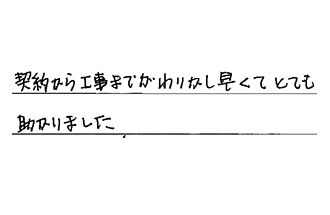 契約から工事までがわりかし早くてとても
助かりました